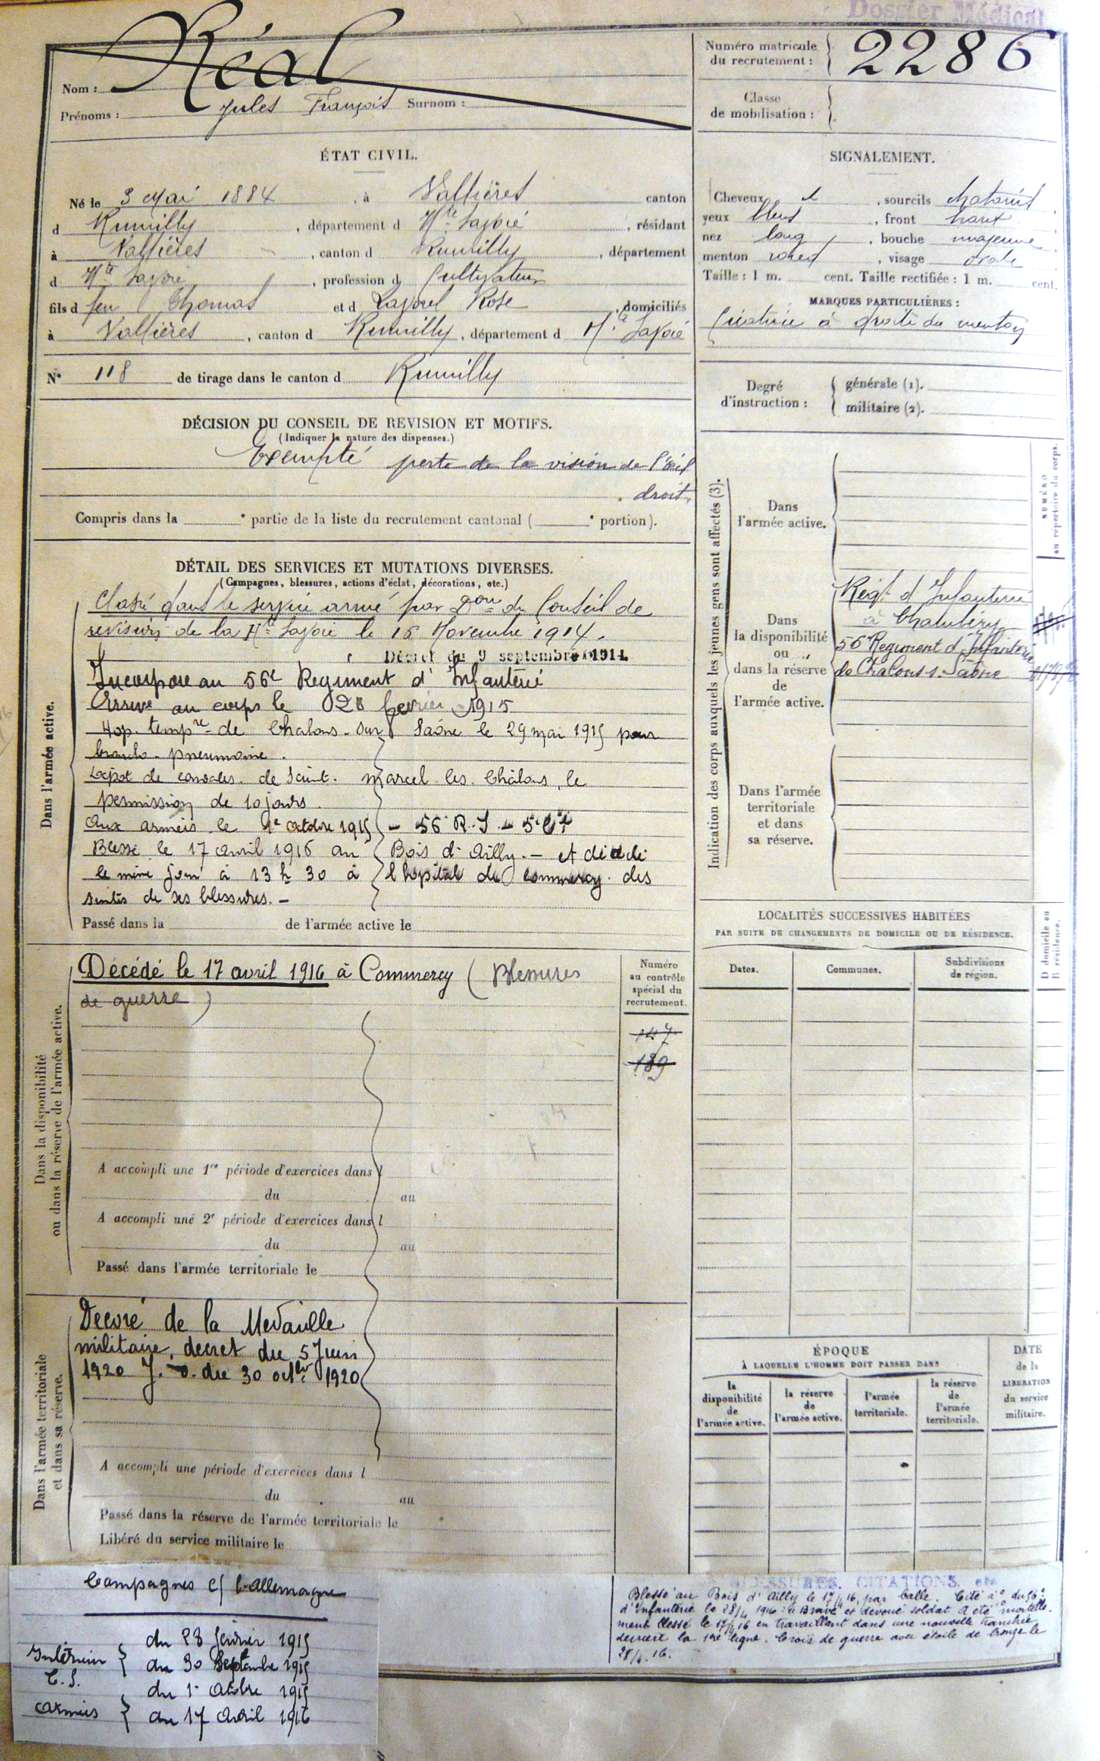 Dossier Médical
Nom : Réal
Prénoms : Jules François Surnom :
Numéro matricule du recrutement : 2286
Classe de mobilisation :
ÉTAT CIVIL.
Né le 3 Mai 1884, à Vallières canton
d Rumilly, département d Hte Savoie, résidant
à Vallières, canton d Rumilly, département
d Hte Savoie, profession d Cultivateur
fils d feu Thomas et d Rose, domiciliés
à Vallières, canton d Rumilly, département d Hte Savoie
N° 118 de tirage dans le canton d Rumilly
SIGNALEMENT.
Cheveux et, sourcils châtains
yeux bleus, front haut
nez long, bouche moyenne
menton rond, visage ovale
Taille : 1 m. cent. Taille rectifiée : 1 m. cent.
MARQUES PARTICULIÈRES :
Cicatrice à droite du menton
Degré d'instruction : générale (1).
militaire (2).
DÉCISION DU CONSEIL DE REVISION ET MOTIFS.
(Indiquer la nature des dispenses.)
Exempté perte de la vision de l'œil
droit
Compris dans la e partie de la liste du recrutement cantonal ( e portion).
DÉTAIL DES SERVICES ET MUTATIONS DIVERSES.
(Campagnes, blessures, actions d'éclat, décorations, etc.)
Dans l'armée active.
Classé dans le service armé par Don du Conseil de
revision de la Hte Savoie le 16 Novembre 1914.
Décret du 9 septembre 1914
Incorporé au 56e Régiment d'Infanterie
Arrivé au corps le 28 février 1915
Hop. tempre de Chalons-sur Saône le 29 mai 1915 pour
broncho-pneumonie.
Dépôt de convales. de Saint-Marcel-les-Châlons, le
permission de 10 jours.
Aux armées le 1er octobre 1915 - 56 R.I. - 5e Cie
Blessé le 17 avril 1916 au Bois d'Ailly. - et décédé
le même jour à 13 h 30 à l'hopital de Commercy des
suites de ses blessures. -
Passé dans la de l'armée active le
Indication des corps auxquels les jeunes gens sont affectés (3).
NUMÉRO au répertoire du corps.
Dans l'armée active.
Dans la disponibilité ou dans la réserve de l'armée active.
Régt d'Infanterie
à Chambéry
56 Régiment d'Infanterie
de Chalons s. Saône
Dans l'armée territoriale et dans sa réserve.
Dans la disponibilité ou dans la réserve de l'armée active.
Décédé le 17 avril 1916 à Commercy (Blessures
de guerre)
Numéro au contrôle spécial du recrutement.
147
189
A accompli une 1re période d'exercices dans l
du au
A accompli une 2e période d'exercices dans l
du au
Passé dans l'armée territoriale le
LOCALITÉS SUCCESSIVES HABITÉES
PAR SUITE DE CHANGEMENTS DE DOMICILE OU DE RÉSIDENCE.
D domicile ou R résidence.
Dates. Communes. Subdivisions de région.
Dans l'armée territoriale et dans sa réserve.
Décoré de la Médaille
militaire, décret du 5 Juin
1920 J. O. du 30 octbre 1920
A accompli une période d'exercices dans l
du au
Passé dans la réserve de l'armée territoriale le
Libéré du service militaire le
ÉPOQUE
À LAQUELLE L'HOMME DOIT PASSER DANS
la disponibilité de l'armée active.
la réserve de l'armée active.
l'armée territoriale.
la réserve de l'armée territoriale.
DATE de la LIBÉRATION du service militaire.
Campagnes c/ l'Allemagne
Intérieur du 28 février 1915
du 30 Septembre 1915
C.S. du 1er Octobre 1915
Armées du 17 Avril 1916
BLESSURES, CITATIONS, etc.
Blessé au Bois d'Ailly le 17/4 16, par balle. Cité à o. du 56e
d'Infanterie le 28/4 1916 : Brave et dévoué soldat. A été mortelle-
ment blessé le 17/4 16 en travaillant dans une nouvelle tranchée
devant la 1ère ligne. Croix de guerre avec étoile de bronze le
28/4. 16.